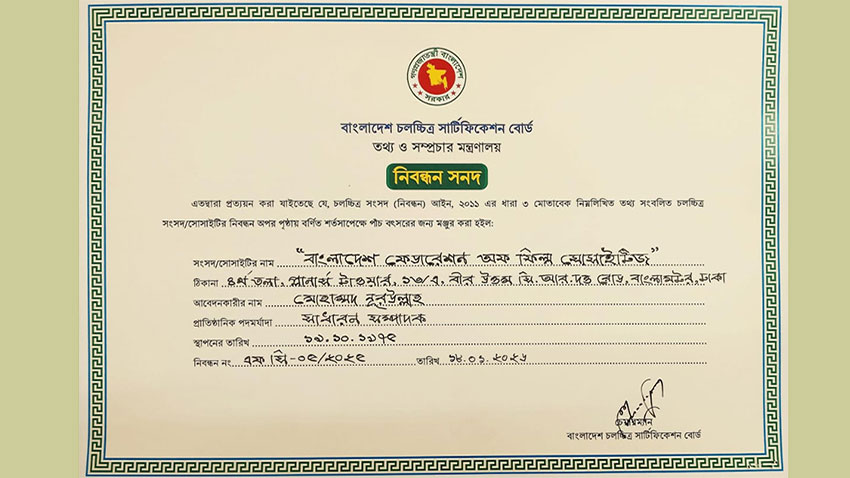 গণপ্রজাতন্ত্রী বাংলাদেশ
সরকার
বাংলাদেশ চলচ্চিত্র সার্টিফিকেশন বোর্ড
তথ্য ও সম্প্রচার মন্ত্রণালয়
নিবন্ধন সনদ
এতদ্বারা প্রত্যয়ন করা যাইতেছে যে, চলচ্চিত্র সংসদ (নিবন্ধন) আইন, ২০১১ এর ধারা ৩ মোতাবেক নিম্নলিখিত তথ্য সংবলিত চলচ্চিত্র
সংসদ/সোসাইটির নিবন্ধন অপর পৃষ্ঠায় বর্ণিত শর্তসাপেক্ষে পাঁচ বৎসরের জন্য মঞ্জুর করা হইল:
সংসদ/সোসাইটির নাম "বাংলাদেশ ফেডারেশন অফ ফিল্ম সোসাইটিজ"
ঠিকানা ৪র্থ তলা, প্লানার্স টাওয়ার, ১৩/এ, বীর উত্তম সি.আর.দত্ত রোড, বাংলামটর, ঢাকা
আবেদনকারীর নাম মোহাম্মদ নূরউল্লাহ
প্রাতিষ্ঠানিক পদমর্যাদা সাধারন সম্পাদক
স্থাপনের তারিখ ১৯.১০.১৯৭৫
নিবন্ধন নং এফ সি-০৫/২০২৫ তারিখ ১৪.০১.২০২৬
চেয়ারম্যান
বাংলাদেশ চলচ্চিত্র সার্টিফিকেশন বোর্ড